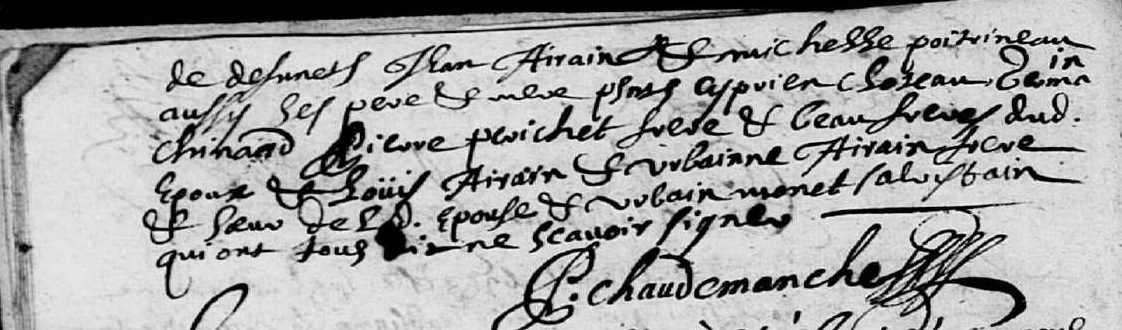 de defuncts Jean Airain & de michelle poitrineau
aussy ses pere & mere pnts cyprien Chozeau Germain
chinand Pierre perichet frere & beau freres dud.
Epoux & Loüis Airain & vrbainne Airain frere
& sœur de lad. Epouse & vrbain monet sacristain
qui ont tous dit ne scavoir signer
P. chaudemanche